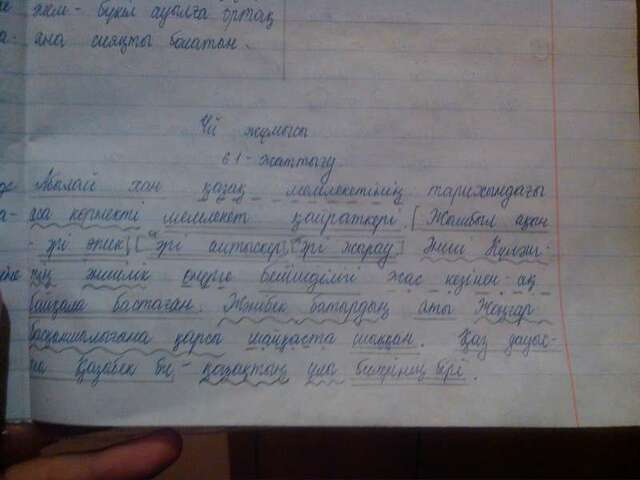 - бүкіл ауылға ортақ
ана сияқты болатын.
Үй жұмысы
61-жаттығу.
Абылай хан қазақ мемлекетінің тарихындағы
аса көрнекті мемлекет қайраткері. [Жамбыл ақын
- әрі әрі айтыскер, әрі жырау.] Әнші
әншілік өнерге бейімділігі жас кезінен-ақ
байқала бастаған. Жәнібек батырдың аты Жоңғар
басқыншылығына қарсы шайқаста шыққан. Қаз дауыс-
ты Қазыбек би - қазақтың ұлы билерінің бірі.